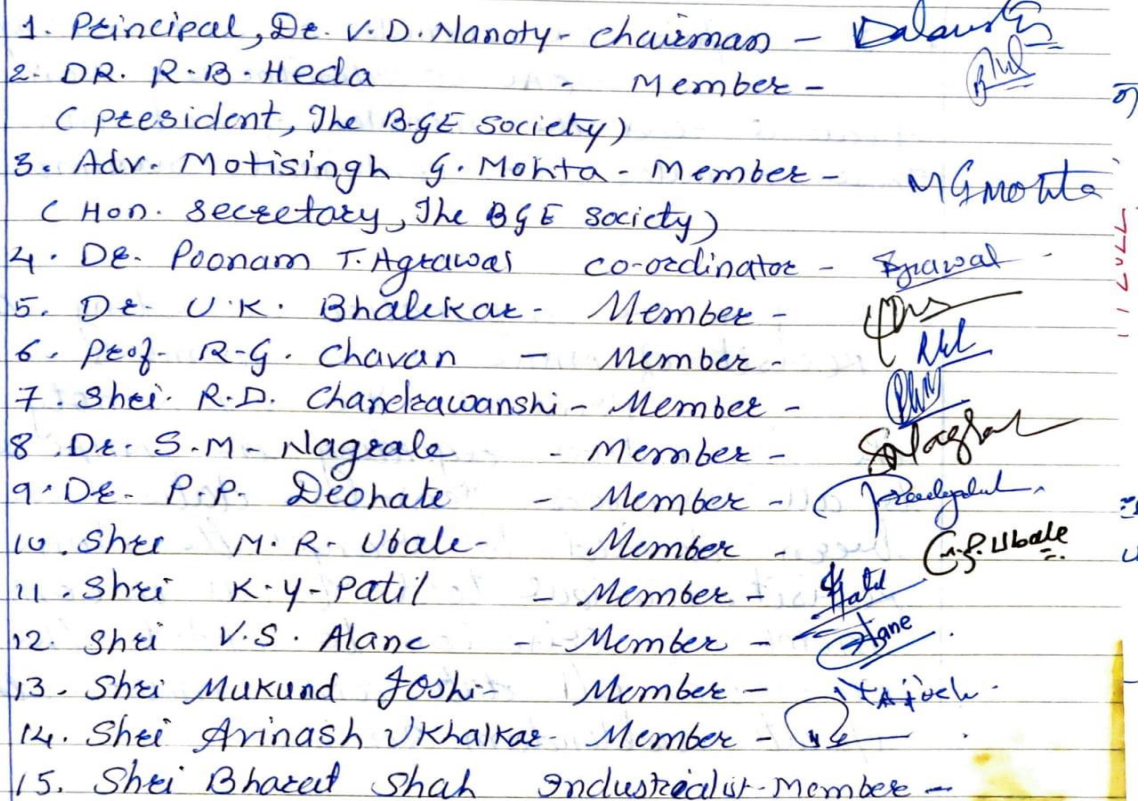 1. Principal, Dr. V.D. Nanoty - Chairman -
2. DR. R.B. Heda - Member -
(President, The B.GE Society)
3. Adv. Motisingh G. Mohta - Member - MGMohta
(Hon. Secretary, The BGE Society)
4. Dr. Poonam T. Agrawal co-ordinator - Agrawal
5. Dr. U.K. Bhalekar - Member -
6. Prof. R.G. Chavan - Member -
7. Shri. R.D. Chandrawanshi - Member -
8. Dr. S.M. Nagrale - Member -
9. Dr. P.P. Deohate - Member -
10. Shri M.R. Ubale - Member - M.R. Ubale
11. Shri K.Y. Patil - Member - Patil
12. Shri V.S. Alane - Member - Alane
13. Shri Mukund Joshi - Member -
14. Shri Avinash Ukhalkar - Member -
15. Shri Bharat Shah Industrialist - Member -